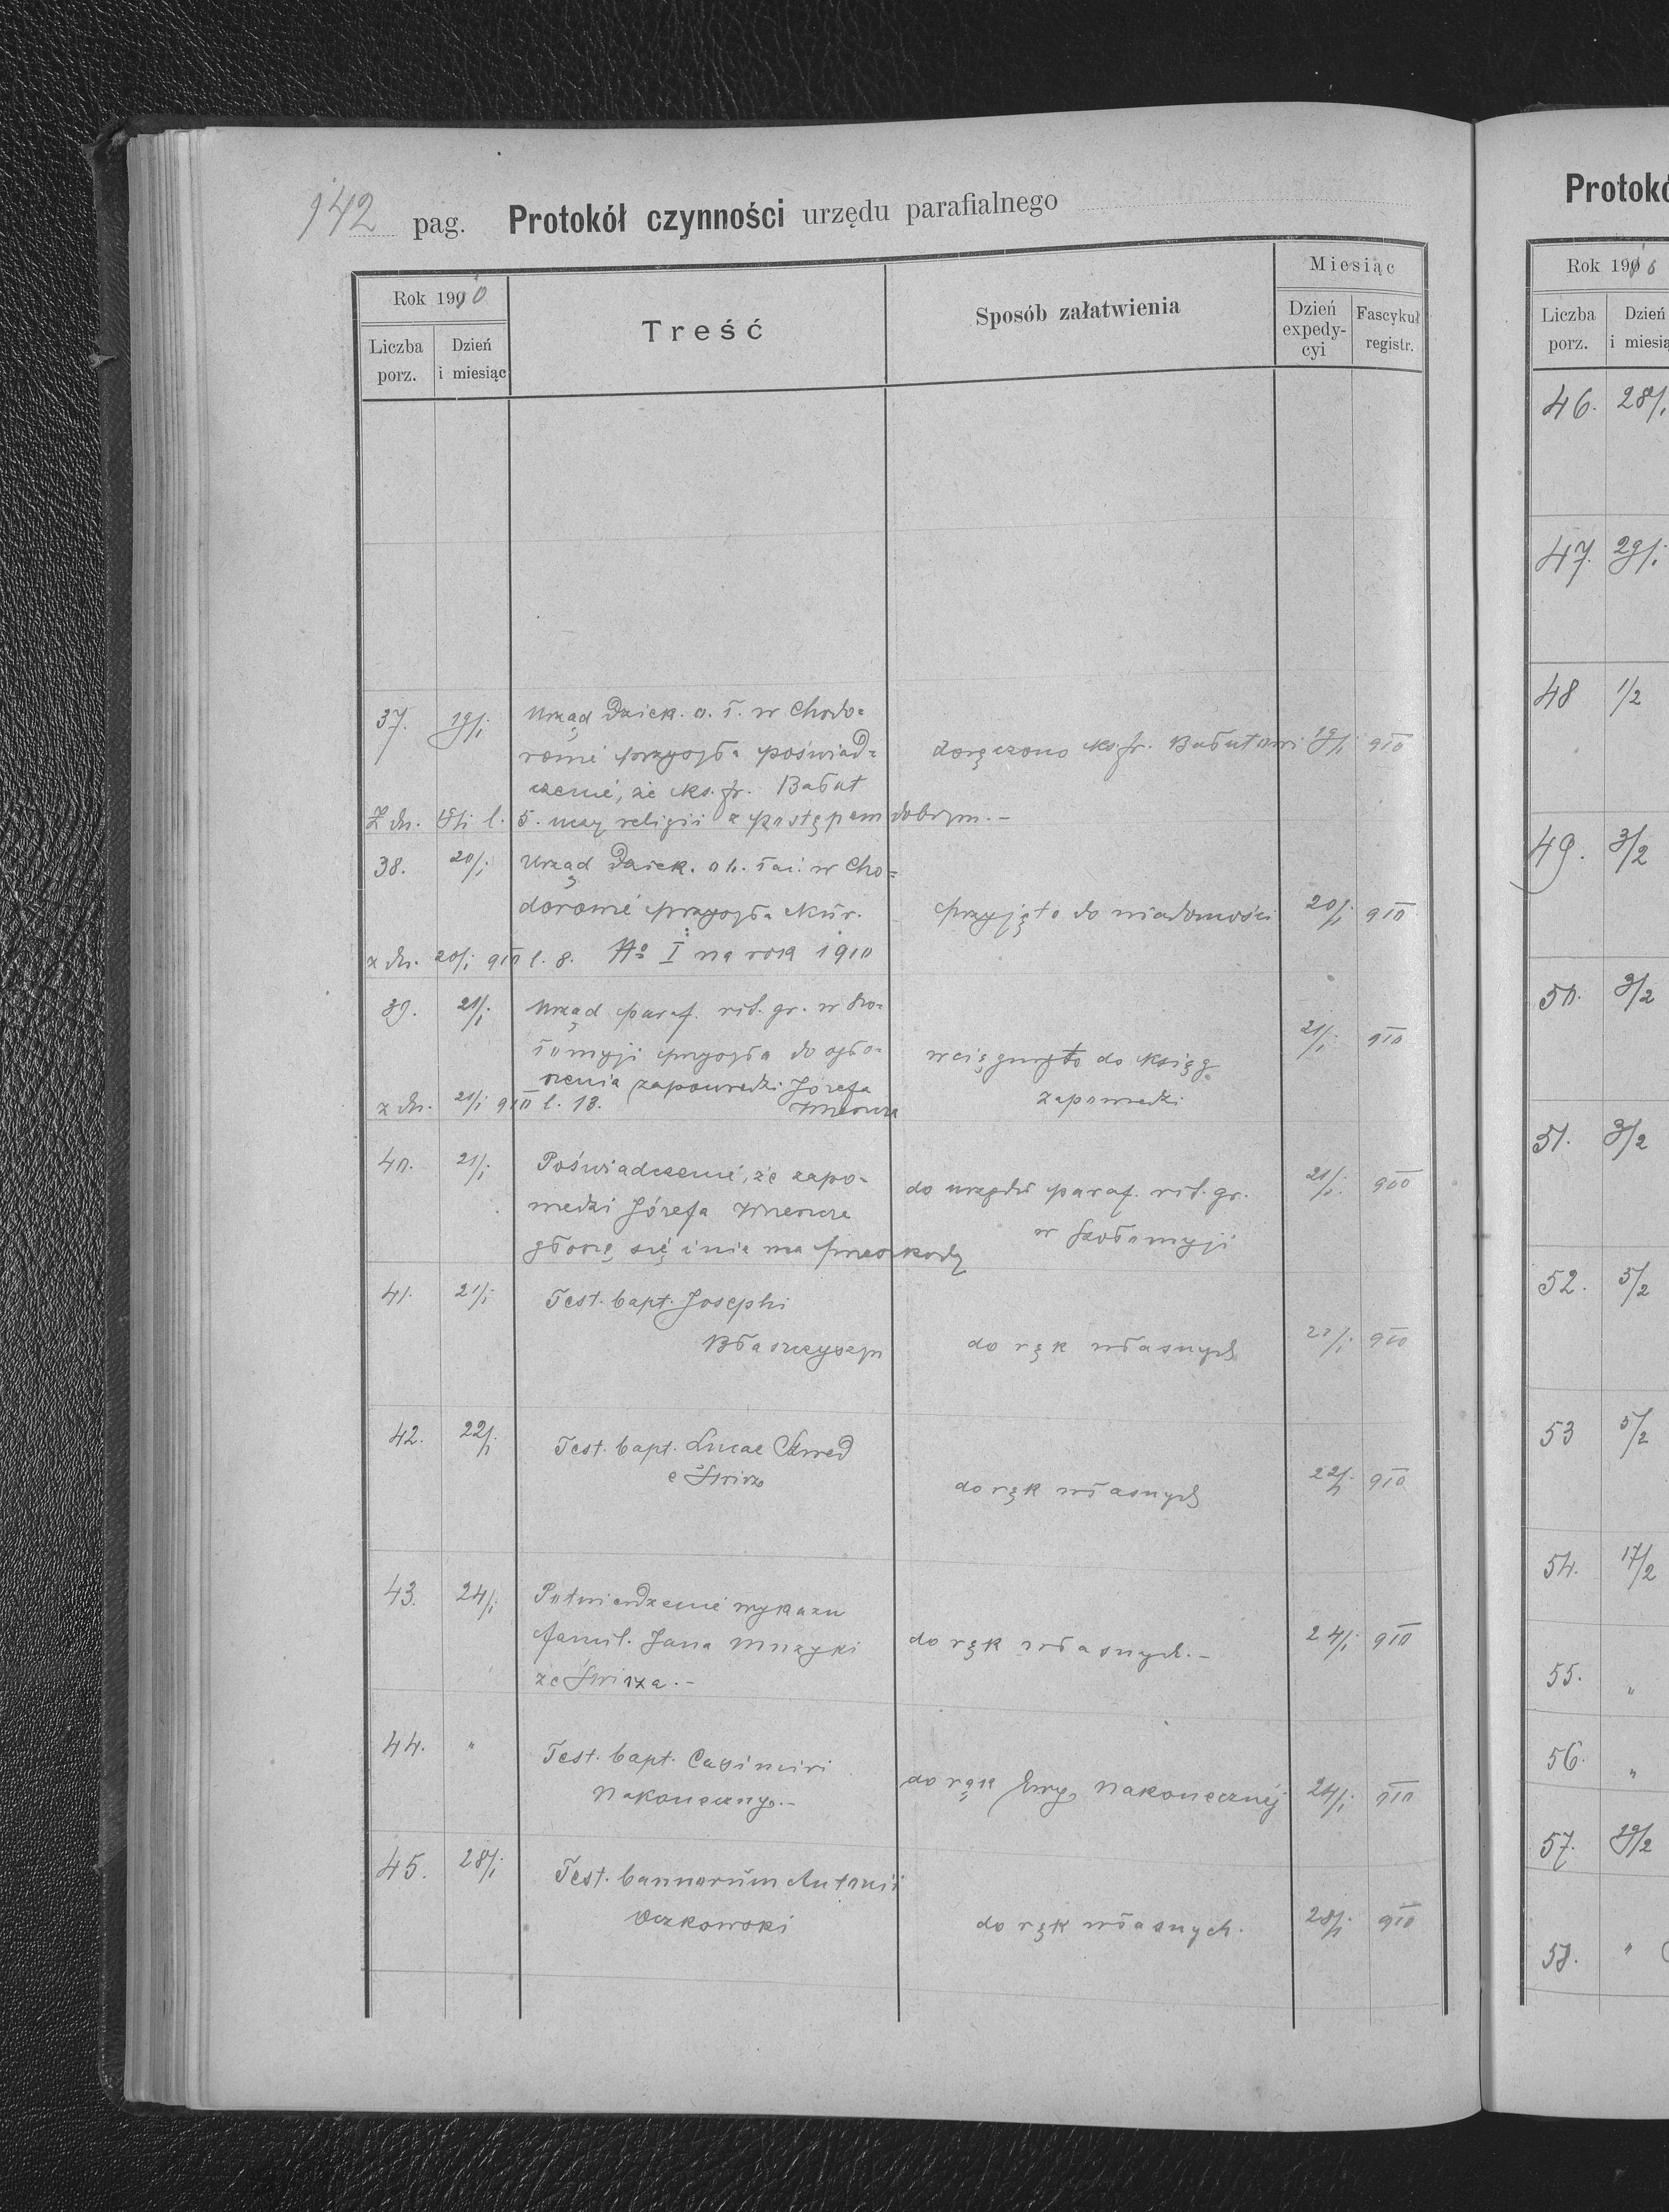 142 pag. Protokół czynności urzędu parafialnego
Rok 1910
Liczba porz.
Dzień i miesiąc
Treść
Sposób załatwienia
Miesiąc
Dzień expedycyi
Fascykuł registr.
37. 19/I Urząd Dziek. o. ł. w Chodo=
rowie przysyła poświad=
czenie, że ks. fr. Bałut
Z dn. l. 5. uczy religii z postępem dobrym.-
doręczono ks. fr. Bałutowi 19/I 910
38. 20/I Urząd Dziek. ob. łać. w Cho=
dorowie przysyła Kur.
z dn. 20/I 910 l. 8. No I na rok 1910
przyjęto do wiadomości 20/I 910
39. 21/I Urząd paraf. rit. gr. w
przysyła do ogło=
szenia zapowiedzi Józefa
z dn. 21/I 910 l. 13.
wciągnięto do ksiąg
zapowiedzi
21/I 910
40. 21/I Poświadczenie, że zapo-
wiedzi Józefa
głoszę się i nie ma przeszkody
do urzędu paraf. rit. gr.
w
21/I 910
41. 21/I Test. bapt. Josephi
Błaszczyszyn
do rąk własnych 910
42. 22/I Test. bapt. Lucae Szwed
e Świrz
do rąk własnych 22/I 910
43. 24/I Potwierdzenie wykazu
famil. Jana Muzyki
ze Świrza.-
do rąk własnych.- 24/I 910
44. " Test. bapt. Casimiri
Nakonecznyj.-
do rąk Ewy Nakonecznej 24/I 910
45. 28/I Test. bannorum Antonii
Oczkowski
do rąk własnych. 28/I 910
Protokó
Rok 1910
Liczba porz.
Dzień
i miesią
46. 28/I
47. 29/I
48 1/2
49. 3/2
50. 3/2
51. 3/2
52. 5/2
53 5/2
54. 17/2
55. "
56. "
57. 19/2
58. "